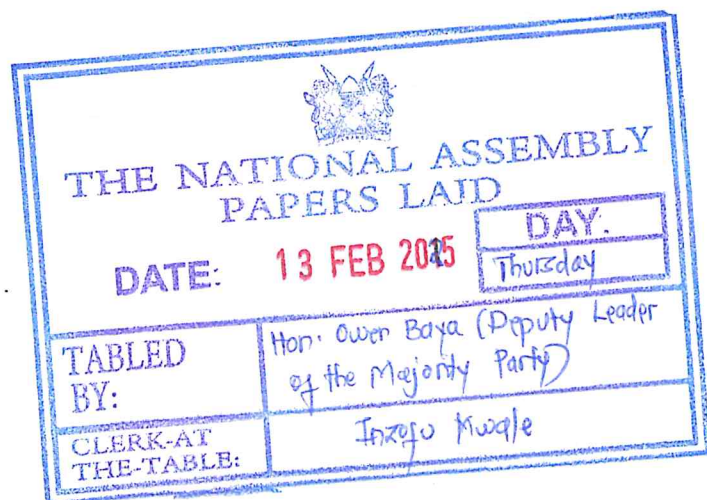 THE NATIONAL ASSEMBLY
PAPERS LAID
DATE: 13 FEB 2025
DAY.
Thursday
TABLED BY:
Hon. Owen Baya (Deputy Leader
of the Majority Party)
CLERK-AT
THE-TABLE:
Inzofu Mwale